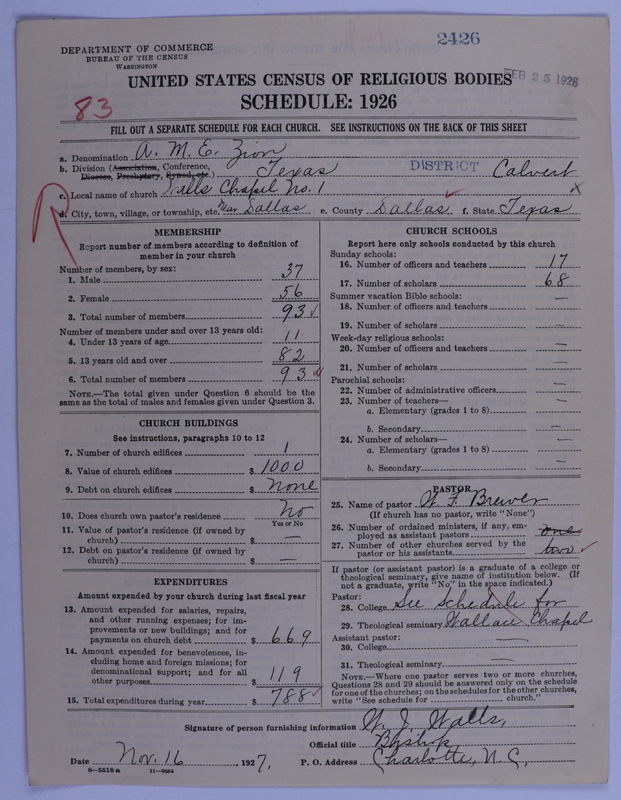 2426
DEPARTMENT OF COMMERCE
BUREAU OF THE CENSUS
WASHINGTON
FEB 25 1928
UNITED STATES CENSUS OF RELIGIOUS BODIES
SCHEDULE: 1926
83
FILL OUT A SEPARATE SCHEDULE FOR EACH CHURCH. SEE INSTRUCTIONS ON THE BACK OF THIS SHEET
a. Denomination A. M. E. Zion
b. Division (Association, Conference, Diocese, Presbytery, Synod, etc.) Texas DISTRICT Calvert
c. Local name of church Walls Chapel No. 1
d. City, town, village, or township, etc. Near Dallas e. County Dallas f. State Texas
MEMBERSHIP
Report number of members according to definition of
member in your church
Number of members, by sex:
1. Male 37
2. Female 56
3. Total number of members 93
Number of members under and over 13 years old:
4. Under 13 years of age 11
5. 13 years old and over 82
6. Total number of members 93
NOTE.—The total given under Question 6 should be
same as the total of males and females given under Question 3.
CHURCH BUILDINGS
See instructions, paragraphs 10 to 12
7. Number of church edifices 1
8. Value of church edifices $ 1000
9. Debt on church edifices $ None
10. Does church own pastor's residence No
Yes or No
11. Value of pastor's residence (if owned by
church) $ —
12. Debt on pastor's residence (if owned by
church) $ —
EXPENDITURES
Amount expended by your church during last fiscal year
13. Amount expended for salaries, repairs,
and other running expenses; for im-
provements or new buildings; and for
payments on church debt $ 669
14. Amount expended for benevolences, in-
cluding home and foreign missions; for
denominational support; and for all
other purposes $ 119
15. Total expenditures during year $ 788
CHURCH SCHOOLS
Report here only schools conducted by this church
Sunday schools:
16. Number of officers and teachers 17
17. Number of scholars 68
Summer vacation Bible schools:
18. Number of officers and teachers —
19. Number of scholars —
Week-day religious schools:
20. Number of officers and teachers —
21. Number of scholars —
Parochial schools:
22. Number of administrative officers —
23. Number of teachers—
a. Elementary (grades 1 to 8) —
b. Secondary —
24. Number of scholars—
a. Elementary (grades 1 to 8) —
b. Secondary —
PASTOR
25. Name of pastor W F Brewer
(If church has no pastor, write "None")
26. Number of ordained ministers, if any, em-
ployed as assistant pastors one
27. Number of other churches served by the
pastor or his assistants two
If pastor (or assistant pastor) is a graduate of a college or
theological seminary, give name of institution below. (If
not a graduate, write "No" in the space indicated.)
Pastor:
28. College See schedule for
29. Theological seminary Wallace Chapel
Assistant pastor:
30. College —
31. Theological seminary —
NOTE.—Where one pastor serves two or more churches,
Questions 28 and 29 should be answered only on the schedule
for one of the churches; on the schedules for the other churches,
write "See schedule for church."
Signature of person furnishing information W. J. Walls,
Official title Bishop
Date Nov. 16 1927. P. O. Address Charlotte, N. C,
8—5518a 11—8664